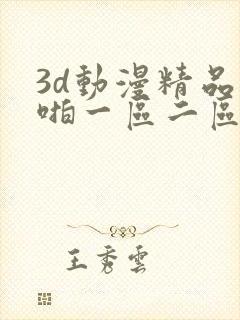 3d動漫精品
啪一區二區
王秀雲